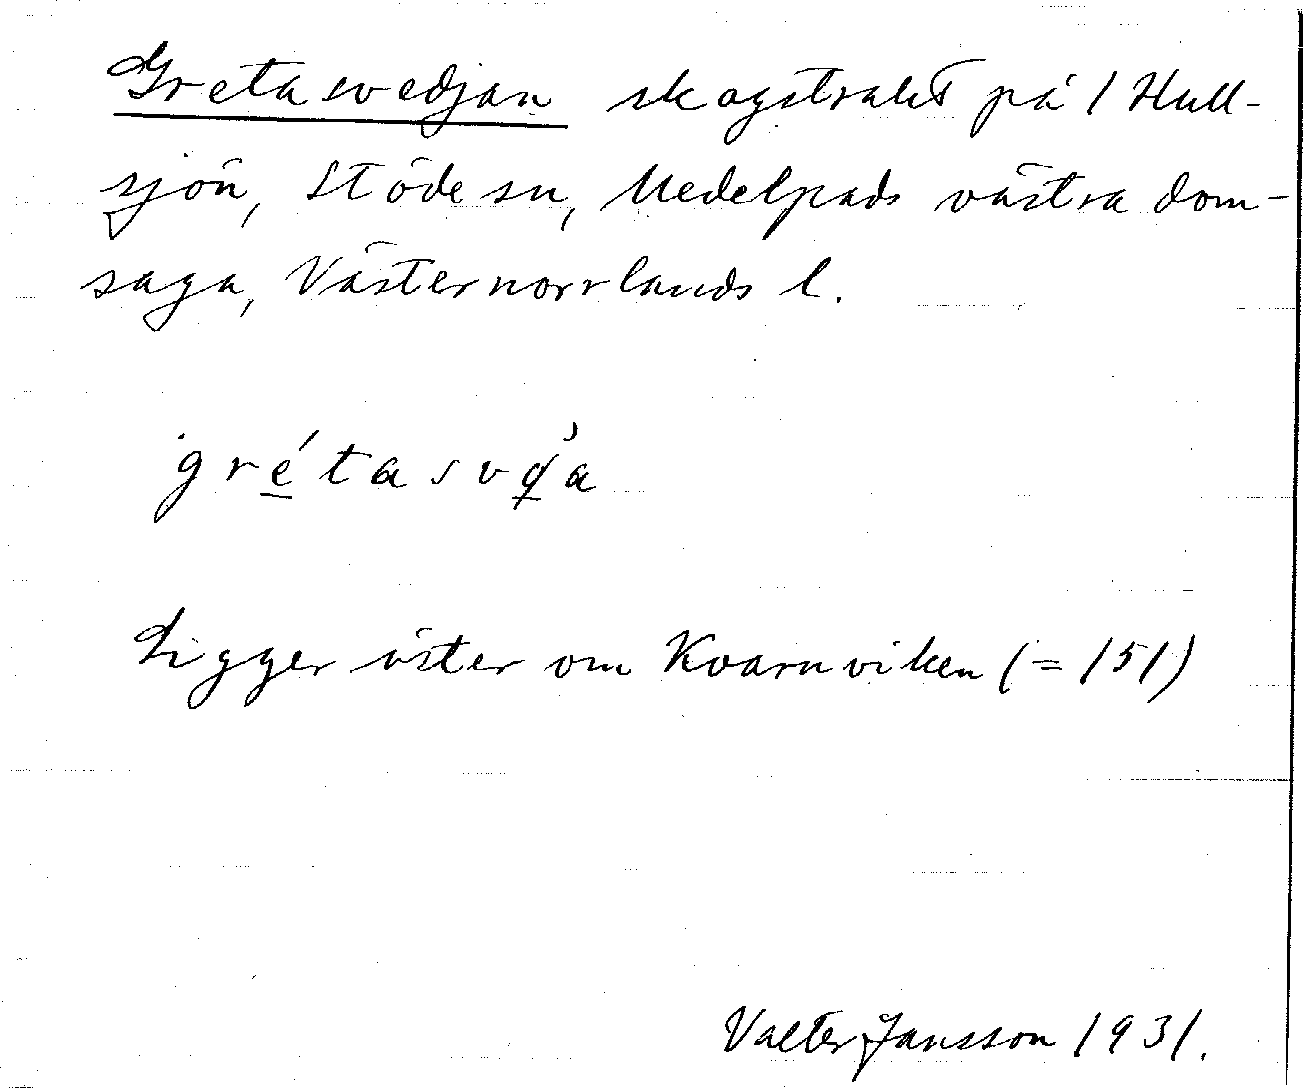 Gretasvedjan skogstrakt på 1 Hull-
sjön, Stöde sn, Medelpads västra dom-
saga, Västernorrlands l.
Ligger öster om Kvarnviken (= 151)
Valter Jansson 1931.